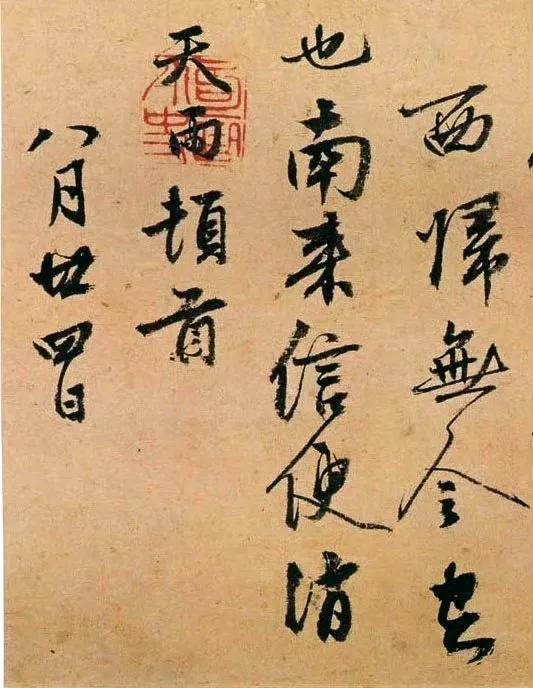 西歸無令
也南来信便
天雨頓首
八月廿四日